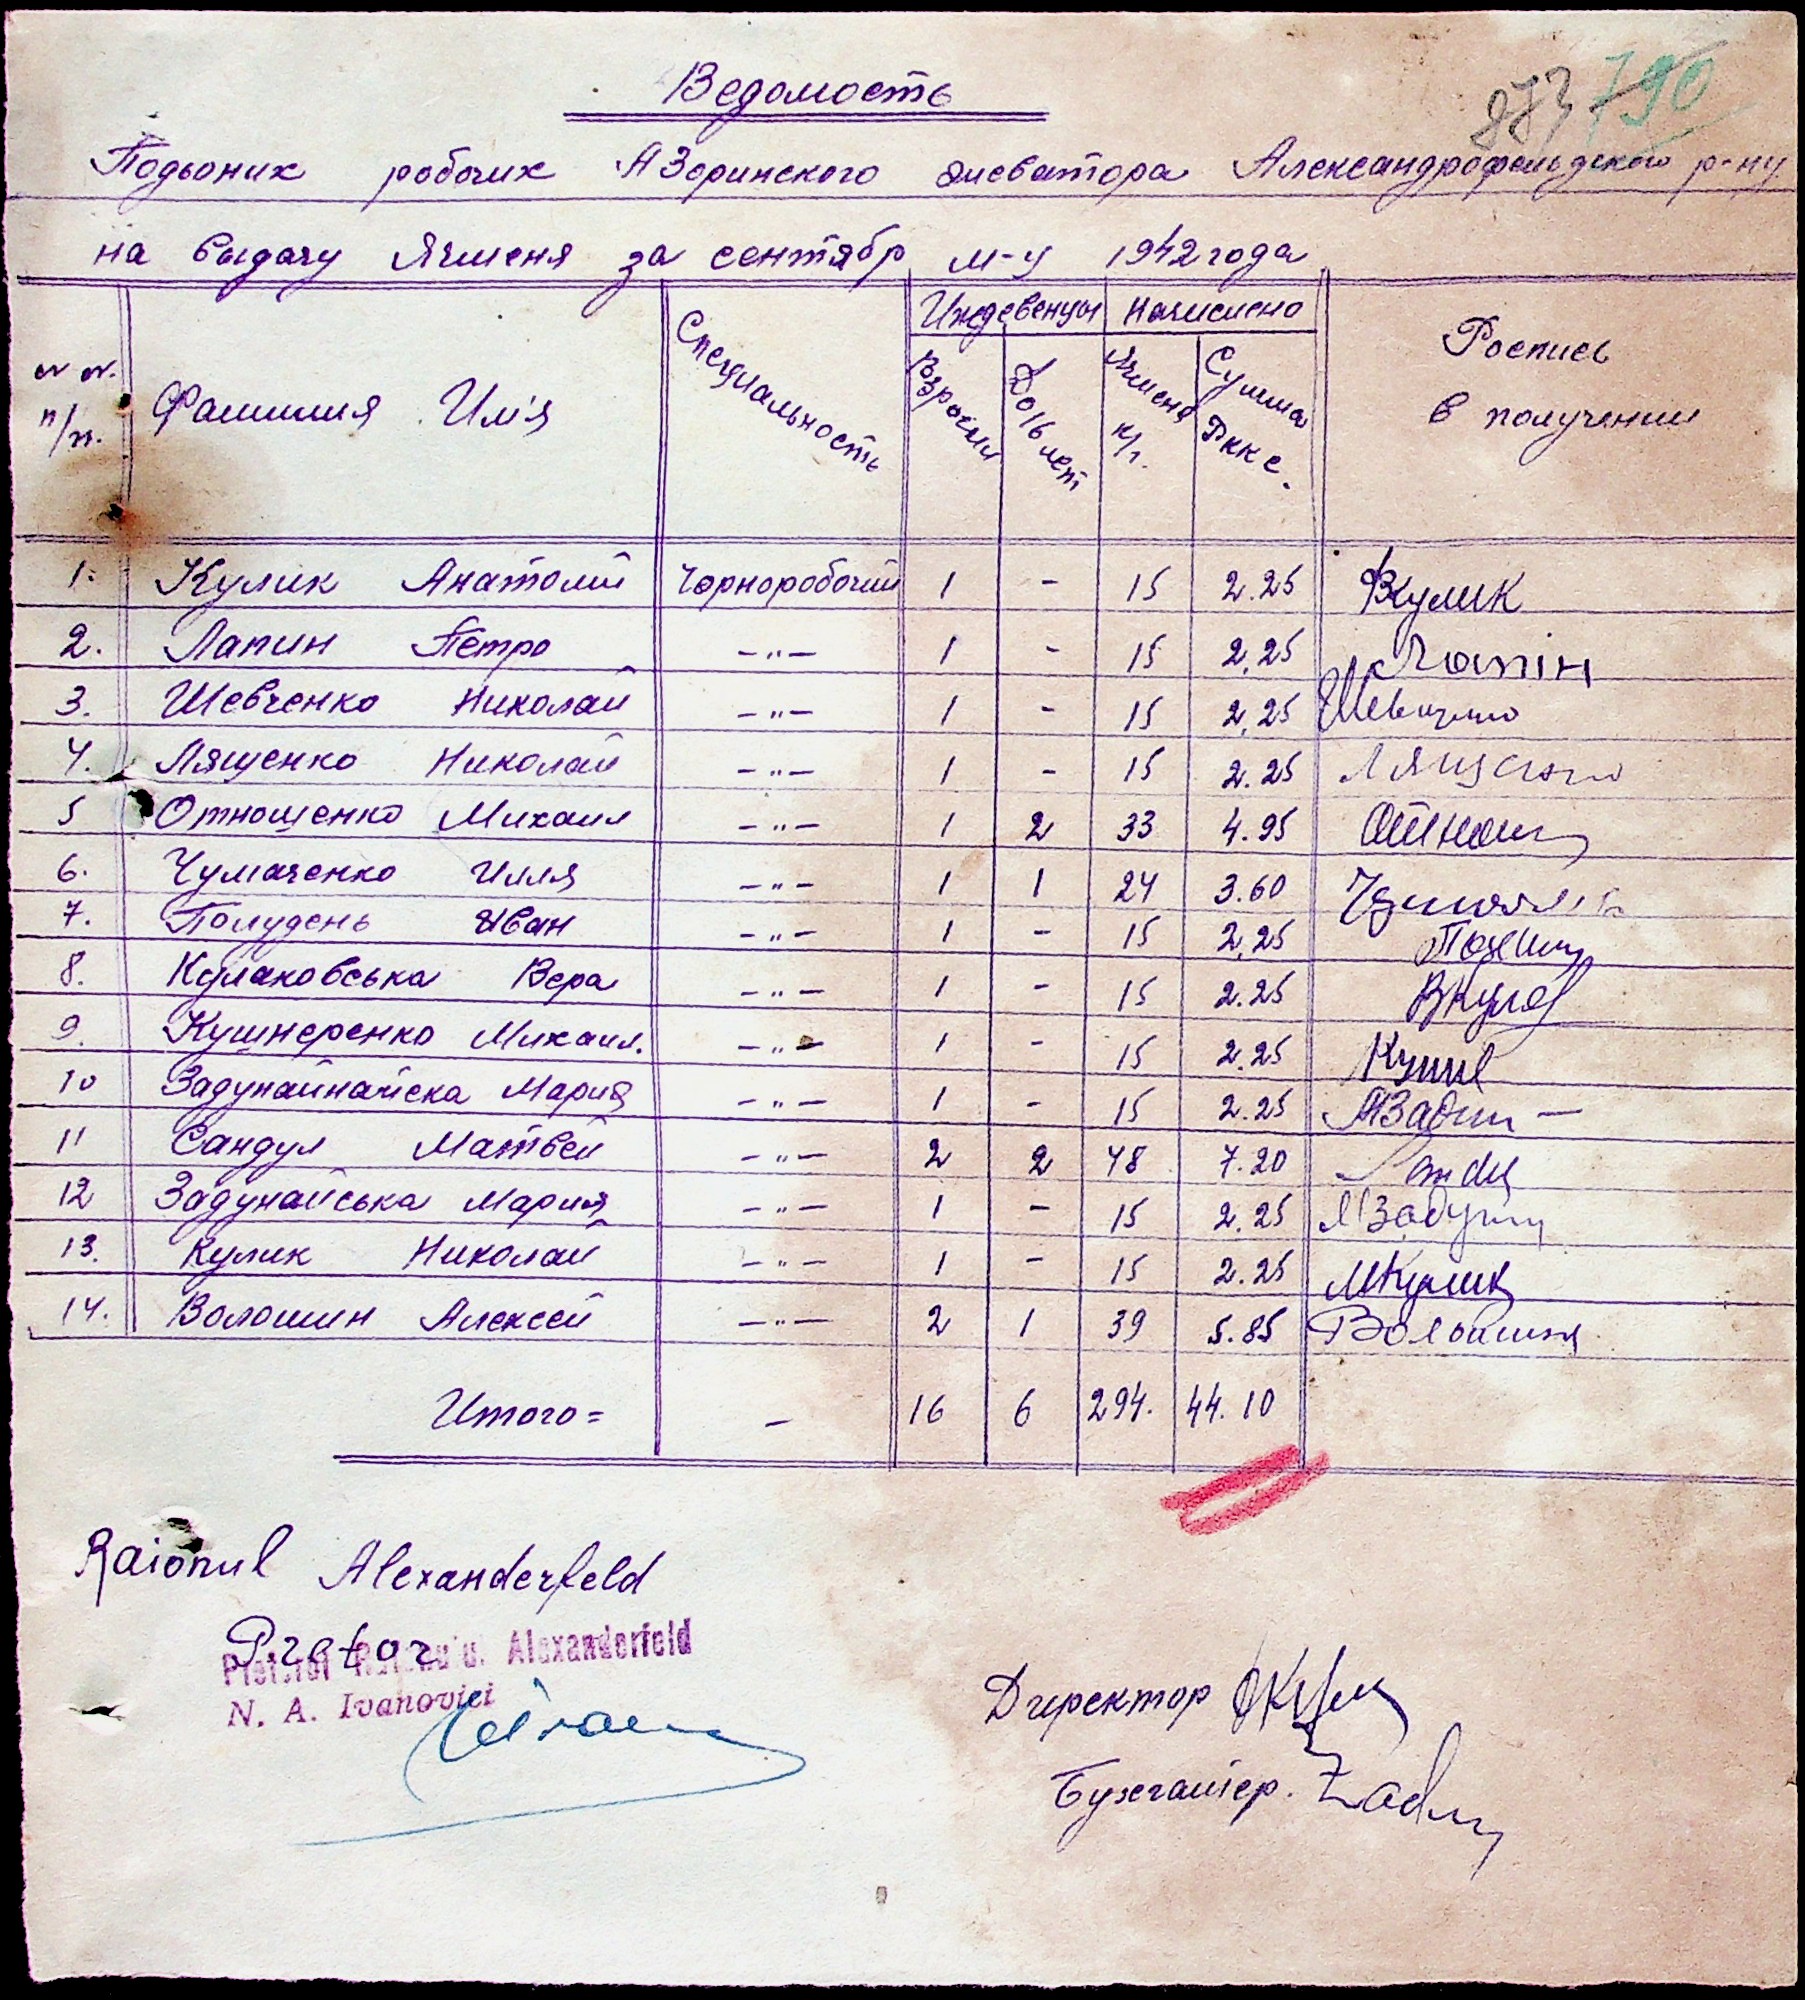 Ведомость
873 790
Подьоних робочих АЗоринского элеватора Александрофельдского р-ну
на выдачу Ячменя за сентябр м-ц 1942 года
№ №. п/п. Фамилия Им'я Специальность Иждевенцы Начислено Роспись в получении
Взрослих До 16 лет Ячменя к/г. Сумма Рккс.
1. Кулик Анатолий Чорноробочий 1 - 15 2.25 Вкулик
2. Лапин Петро -"- 1 - 15 2.25 Лапін
3. Шевченко Николай -"- 1 - 15 2.25 Шевченко
4. Лященко Николай -"- 1 - 15 2.25 Лященко
5 Отнощенко Михаил -"- 1 2 33 4.95 Отнощ
6. Чумаченко Илля -"- 1 1 24 3.60
7. Полудень Иван -"- 1 - 15 2.25
8. Кулаковська Вера -"- 1 - 15 2.25 Вкулов
9. Кушнеренко Михаил. -"- 1 - 15 2.25 Кушн
10 Задунайнайска Мария -"- 1 - 15 2.25 МЗадун -
11 Сандул Матвей -"- 2 2 48 7.20
12 Задунайська Мария -"- 1 - 15 2.25 МЗадун
13. Кулик Николай -"- 1 - 15 2.25 МКулик
14. Волошин Алексей -"- 2 1 39 5.85 Волошин
Итого = - 16 6 294. 44.10
Raionul Alexanderfeld
Pretor
Pretorul Raionului Alexanderfeld
N. A. Ivanovici
Директор
Бухгалтер.